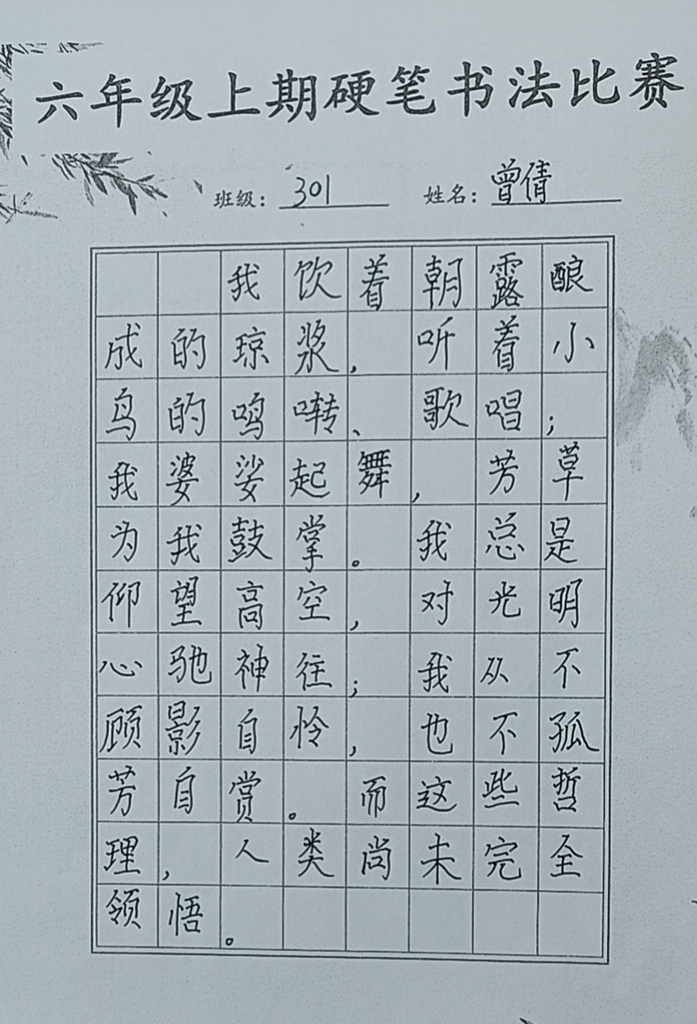 六年级上期硬笔书法比赛
班级：301 姓名：曾倩
我饮着朝露酿
成的琼浆，听着小
鸟的鸣啭、歌唱；
我婆娑起舞，芳草
为我鼓掌。我总是
仰望高空，对光明
心驰神往；我从不
顾影自怜，也不孤
芳自赏。而这些哲
理，人类尚未完全
领悟。